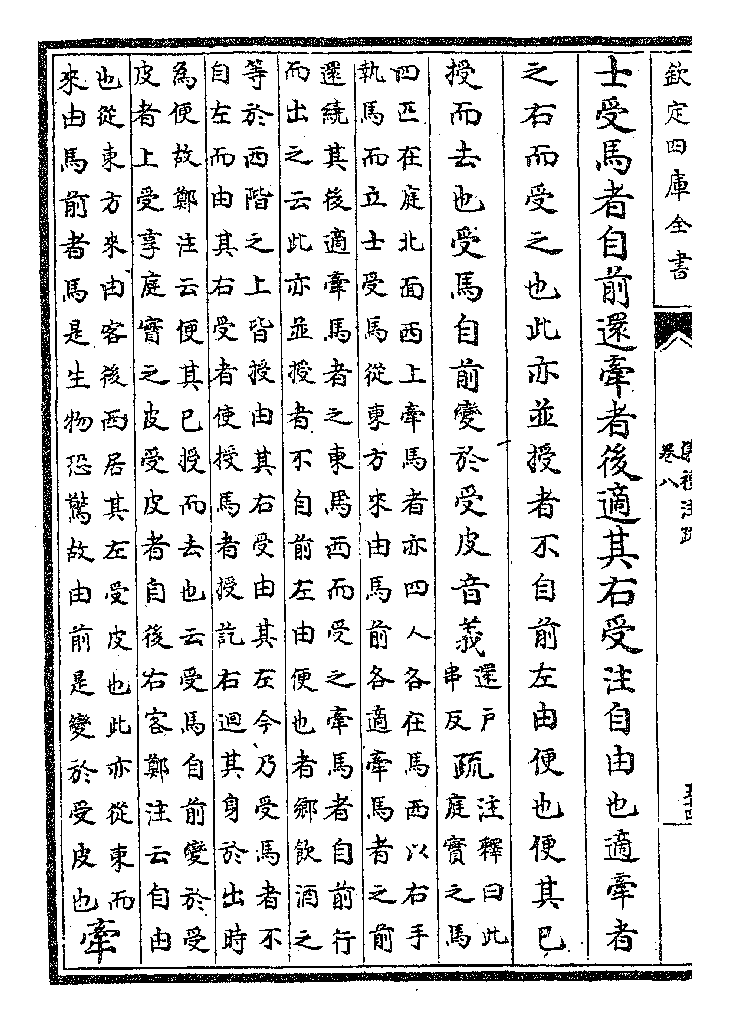 欽定四庫全書
卷八
士受馬者自前還牽者後適其右受注自由也適牽者
之右而受之也此亦並授者不自前左由便也便其已
授而去也受馬自前變於受皮音義還戶串反疏注釋曰此庭實之馬
四匹在庭北面西上牽馬者亦四人各在馬西以右手
執馬而立士受馬從東方來由馬前各適牽馬者之前
還繞其後適牽馬者之東馬西而受之牽馬者自前行
而出之云此亦並授者不自前左由便也者鄉飲酒之
等於西階之上皆授由其右受由其左今乃受馬者不
自左而由其右受者使授馬者授訖右迴其身於出時
為便故鄭注云便其已授而去也云受馬自前變於受
皮者上受享庭實之皮受皮者自後右客鄭注云自由
也從東方來由客後西居其左受皮也此亦從東而
來由馬前者馬是生物恐驚故由前是變於受皮也牽